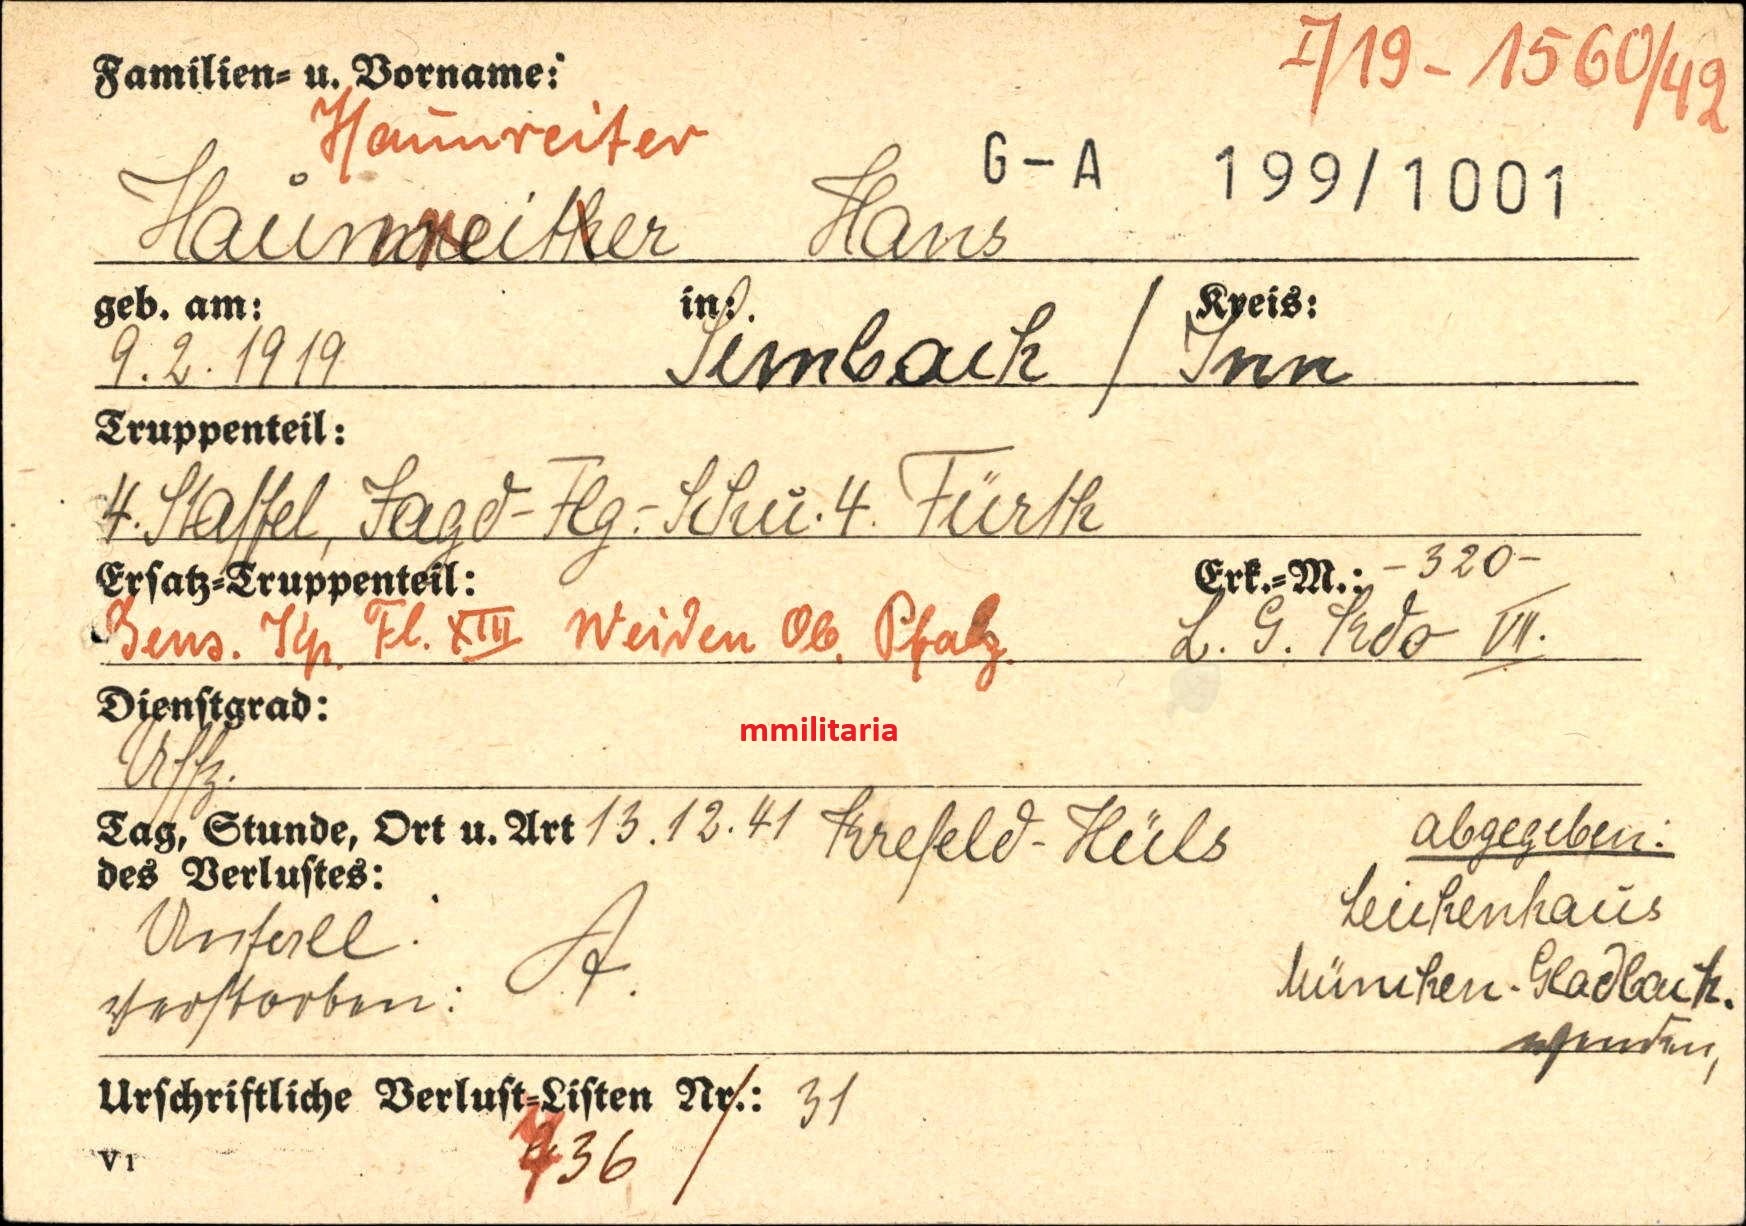 I/19-1560/42
Familien- u. Vorname:
Haunreiter
G-A 199/1001
Haunreiter Hans
geb. am: in: Kreis:
9.2.1919 Simbach / Inn
Truppenteil:
4. Staffel, Jagd-Flg.-Schu. 4. Fürth
Ersatz-Truppenteil: Erk.-M.: -320-
Gens. Kp. Fl. XIII Weiden Ob. Pfalz. L. G. Kdo VII.
Dienstgrad:
Uffz.
mmilitaria
Tag, Stunde, Ort u. Art 13.12.41 Krefeld-Hüls abgegeben:
des Verlustes:
Leichenhaus
Unfall.
München-Gladbach.
verstorben: A.
wenden,
Urschriftliche Verlust-Listen Nr.: 31
36 /
V 1